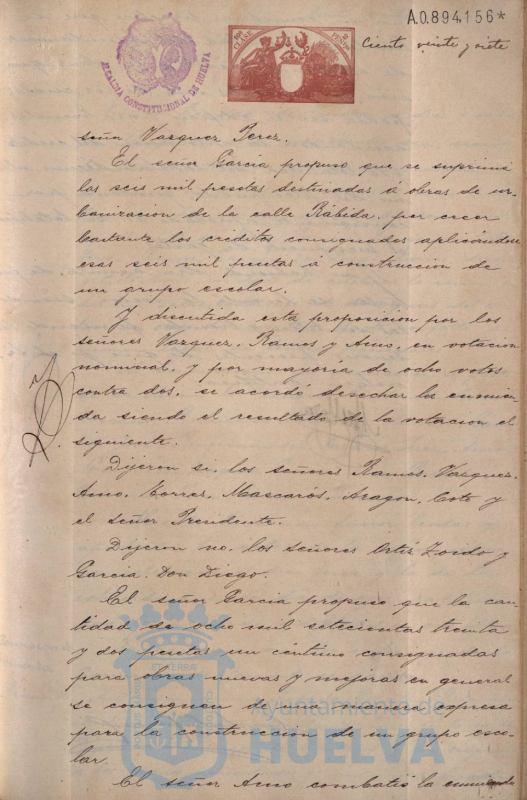 A.0.894,156*
Ciento veinte y siete
ALCALDIA CONSTITUCIONAL DE HUELVA
CLASE
señor Vazquez Perez.
El señor Garcia propuso que se suprima
las seis mil pesetas destinadas á obras de ur-
banizacion de la calle Rábida, por creer
bastante los créditos consignados aplicándose
esas seis mil pesetas á construccion de
un grupo escolar.
Y discutida esta proposicion por los
señores Vazquez, Ramos y Amo, en votacion
nominal, y por mayoría de ocho votos
contra dos, se acordó desechar la enmien-
da siendo el resultado de la votacion el
siguiente.
Dijeron si, los señores Ramos, Vazquez,
Amo, Torres, Mascarós, Aragon, Coto y
el señor Presidente.
Dijeron no, los señores Ortiz Zardo y
Garcia, Don Diego.
El señor Garcia propuso que la can-
tidad de ocho mil setecientas treinta
y dos pesetas un céntimo consignadas
para obras nuevas y mejoras en general
se consignen de una manera expresa
para la construccion de un grupo esco-
lar.
El señor Amo combatió la enmienda
Ayuntamiento de
HUELVA